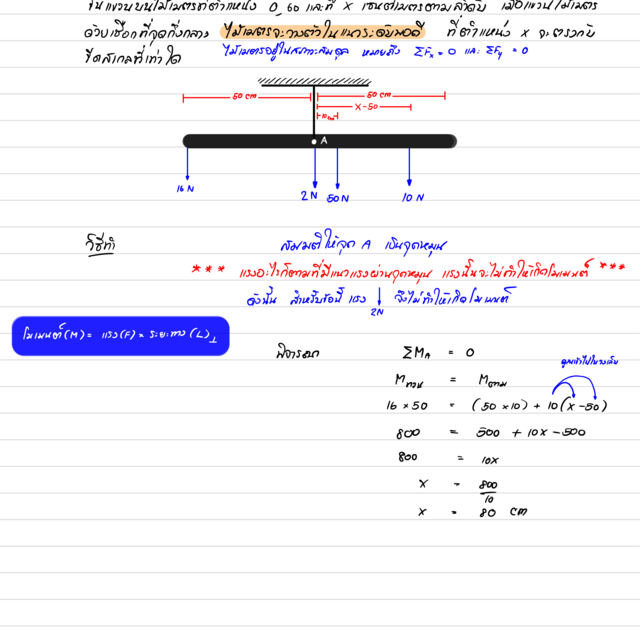 แขวนบนไม้เมตรที่ตำแหน่ง 0, 60 และที่ X เซนติเมตรตามลำดับ เมื่อแขวนไม้เมตร
ด้วยเชือกที่จุดกึ่งกลาง ไม้เมตรจะวางตัวในแนวระดับพอดี ที่ตำแหน่ง X จะตรงกับ
ขีดสเกลที่เท่าใด ไม้เมตรอยู่ในสภาวะสมดุล หมายถึง ΣFx = 0 และ ΣFy = 0
50 cm 50 cm
X-50
10 cm
A
16 N 2 N 50 N 10 N
วิธีทำ สมมติให้จุด A เป็นจุดหมุน
*** แรงอะไรก็ตามที่มีแนวแรงผ่านจุดหมุน แรงนั้นจะไม่ทำให้เกิดโมเมนต์ ***
ดังนั้น สำหรับข้อนี้ แรง ↓ จึงไม่ทำให้เกิดโมเมนต์
2N
โมเมนต์(M) = แรง(F) × ระยะทาง(L)⊥
พิจารณา ΣMA = 0
คูณเข้าไปในวงเล็บ
Mทวน = Mตาม
16 × 50 = (50 × 10) + 10(X-50)
800 = 500 + 10X - 500
800 = 10X
X = 800
10
X = 80 cm